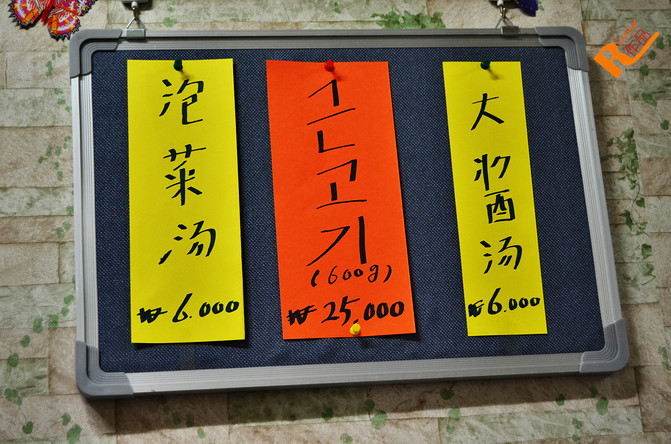 泡菜汤
₩6.000
소고기
(600g)
₩25,000
大酱汤
₩6.000